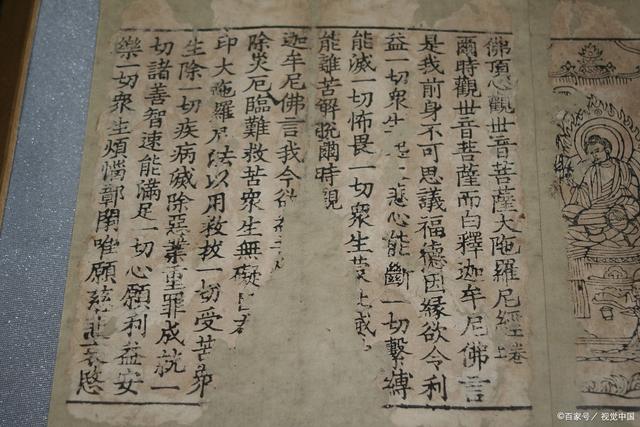 佛頂心觀世音菩薩大陁羅尼經卷上
爾時觀世音菩薩而白釋迦牟尼佛言
是我前身不可思議福德因緣欲令利
益一切衆生悲心能斷一切繫縛
能滅一切怖畏一切衆生蒙此威
能離苦解脫爾時觀
迦牟尼佛言我今欲
除災厄臨難救苦衆生無礙
印大陁羅尼法以用救拔一切受苦衆
生除一切疾病滅除惡業重罪成就一
切諸善智速能滿足一切心願利益安
樂一切衆生煩惱鄣閡唯願慈悲哀愍
©百家号／视觉中国